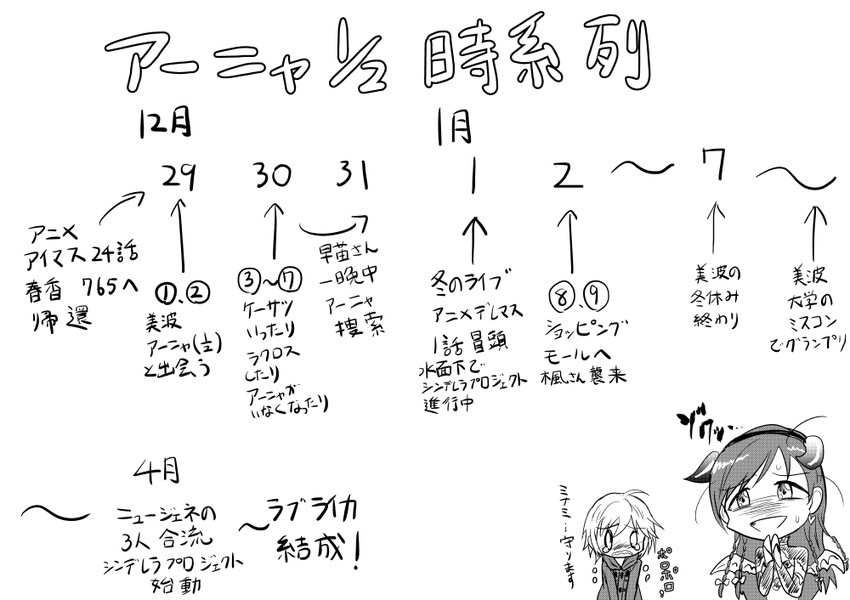 アーニャ1/2 時系列
12月
1月
29
30
31
1
2
〜
7
〜
アニメ
アイマス24話
春香 765へ
帰還
①、②
美波
アーニャ(1/2)
と出会う
③〜⑦
ケーサツ
いったり
ラクロス
したり
アーニャが
いなくなったり
早苗さん
一晩中
アーニャ
捜索
冬のライブ
アニメデレマス
1話冒頭
水面下で
シンデレラプロジェクト
進行中
⑧、⑨
ショッピング
モールへ
楓さん襲来
美波の
冬休み
終わり
美波
大学の
ミスコン
でグランプリ
4月
〜
ニュージェネの
3人合流
シンデレラプロジェクト
始動
〜ラブライカ
結成!
ミナミ…守ります
ポロポロ
ゾワッ…